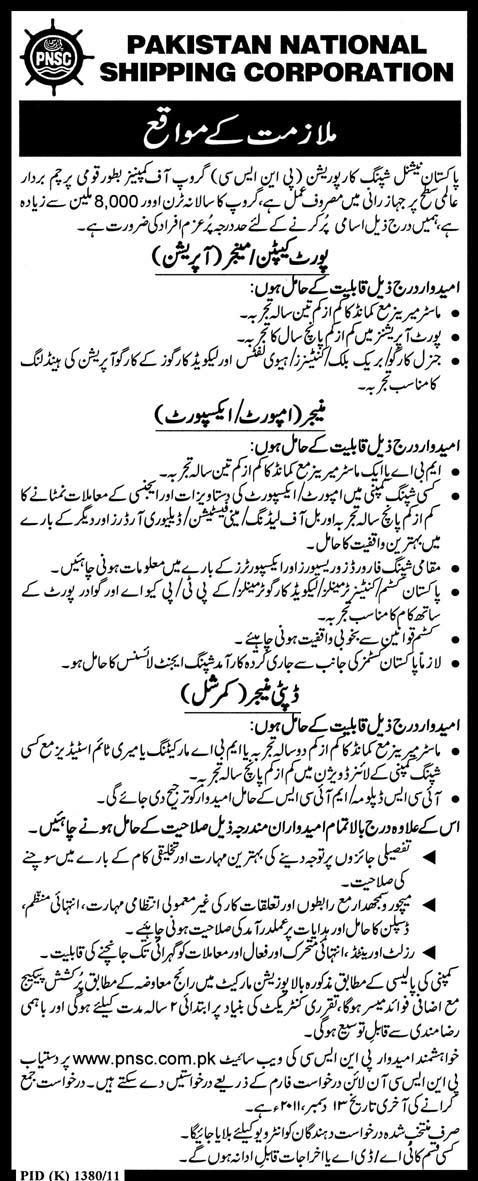 PNSC
PAKISTAN NATIONAL
SHIPPING CORPORATION
ملازمت کے مواقع
پاکستان نیشنل شپنگ کارپوریشن (پی این ایس سی) گروپ آف کمپنیز بطور قومی پرچم بردار
عالمی سطح پر جہاز رانی میں مصروف عمل ہے، گروپ کا سالانہ ٹرن اوور 8,000 ملین سے زیادہ
ہے، ہمیں درج ذیل اسامی پُر کرنے کے لئے حد درجہ پُر عزم افراد کی ضرورت ہے۔
پورٹ کیپٹن/منیجر (آپریشن)
امیدوار درج ذیل قابلیت کے حامل ہوں:
• ماسٹر میریز مع کمانڈ کا کم از کم تین سالہ تجربہ۔
• پورٹ آپریشنز میں کم از کم پانچ سال کا تجربہ۔
• جنرل کارگو/بریک بلک/کنٹینرز/ہیوی لفٹس اور لیکویڈ کارگوز کے کارگو آپریشن کی ہینڈلنگ
کا مناسب تجربہ۔
منیجر (امپورٹ/ایکسپورٹ)
امیدوار درج ذیل قابلیت کے حامل ہوں:
• ایم بی اے یا ایک ماسٹر میریز مع کمانڈ کا کم از کم تین سالہ تجربہ۔
• کسی شپنگ کمپنی میں امپورٹ/ایکسپورٹ کی دستاویزات اور ایجنسی کے معاملات نمٹانے کا
کم از کم پانچ سالہ تجربہ اور بل آف لیڈنگ/مینی فیسٹیشن/ڈیلیوری آرڈرز اور دیگر کے بارے
میں بہترین واقفیت کا حامل۔
• مقامی شپنگ فارورڈرز وریسیورز اور ایکسپورٹرز کے بارے میں معلومات ہونی چاہئیں۔
• پاکستان کسٹم/کنٹینر ٹرمینلز/لیکویڈ کارگو ٹرمینلز/کے پی ٹی/پی کیو اے اور گوادر پورٹ کے
ساتھ کام کا مناسب تجربہ۔
• کسٹم قوانین سے بخوبی واقفیت ہونی چاہئے۔
• لازماً پاکستان کسٹمز کی جانب سے جاری کردہ کارآمد شپنگ ایجنٹ لائسنس کا حامل ہو۔
ڈپٹی منیجر (کمرشل)
امیدوار درج ذیل قابلیت کے حامل ہوں:
• ماسٹر میریز مع کمانڈ کا کم از کم دو سالہ تجربہ یا ایم بی اے مارکیٹنگ یا میری ٹائم اسٹیڈیز مع کسی
شپنگ کمپنی کے لائنز ڈویژن میں کم از کم پانچ سالہ تجربہ۔
• آئی سی ایس ڈپلومہ/ایم آئی سی ایس کے حامل امیدوار کو ترجیح دی جائے گی۔
اس کے علاوہ درج بالا تمام امیدواران مندرجہ ذیل صلاحیت کے حامل ہونے چاہئیں۔
◄ تفصیلی جائزوں پر توجہ دینے کی بہترین مہارت اور تخلیقی کام کے بارے میں سوچنے
کی صلاحیت۔
◄ میچور و سمجھدار مع رابطوں اور تعلقات کار کی غیر معمولی انتظامی مہارت، انتہائی منظّم،
ڈسپلن کا حامل اور ہدایات پر عملدرآمد کی صلاحیت ہونی چاہئے۔
◄ رزلٹ اورینٹڈ، انتہائی متحرک اور فعال اور معاملات کو گہرائی تک جانچنے کی قابلیت۔
کمپنی کی پالیسی کے مطابق مذکورہ بالا پوزیشن مارکیٹ میں رائج معاوضہ کے مطابق پُرکشش پیکیج
مع اضافی فوائد میسر ہوگا، تقرری کنٹریکٹ کی بنیاد پر ابتدائی ۲ سالہ مدت کیلئے ہوگی اور باہمی
رضامندی سے قابل توسیع ہوگی۔
خواہشمند امیدوار پی این ایس سی کی ویب سائیٹ www.pnsc.com.pk پر دستیاب
پی این ایس سی آن لائن درخواست فارم کے ذریعے درخواستیں دے سکتے ہیں۔ درخواست جمع
کرانے کی آخری تاریخ ۱۳ دسمبر، ۲۰۱۱ء ہے۔
صرف منتخب شدہ درخواست دہندگان کو انٹرویو کیلئے بلایا جائیگا۔
کسی قسم کا ٹی اے/ڈی اے یا اخراجات قابلِ ادا نہ ہوں گے۔
PID (K) 1380/11